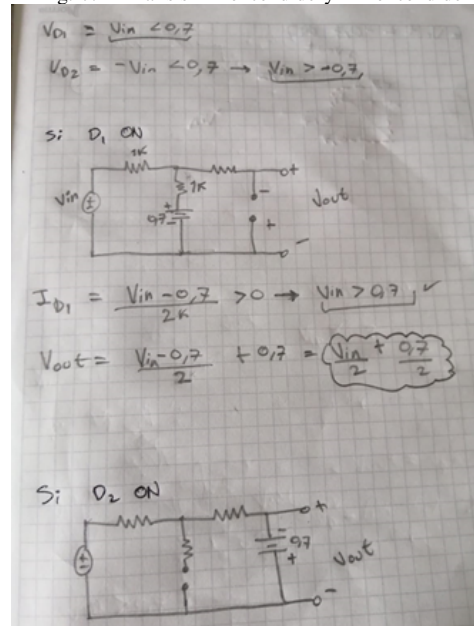 V_D1 = Vin < 0,7
V_D2 = -Vin < 0,7 → Vin > -0,7
Si D₁ ON
1K
Vin
1K
+
0,7
-
+
-
+
Vout
-
I_D1 = Vin - 0,7 / 2K > 0 → Vin > 0,7 ✓
Vout = Vin - 0,7 / 2 + 0,7 = Vin / 2 + 0,7 / 2
Si D₂ ON
+
-
0,7
+
Vout
-